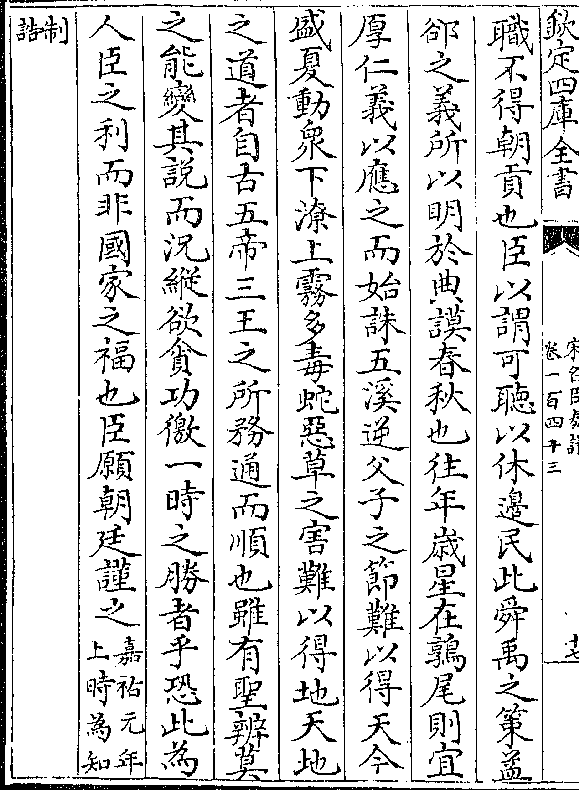 欽定四庫全書
宋名臣奏議
卷一百四十三
職不得朝貢也臣以謂可聽以休邊民此舜禹之策益
郤之義所以明於典謨春秋也往年歳星在鶉尾則宜
厚仁義以應之而始誅五溪逆父子之節難以得天今
盛夏動衆下潦上霧多毒蛇惡草之害難以得地天地
之道者自古五帝三王之所務通而順也雖有聖辨莫
之能變其說而況縱欲貪功徼一時之勝者乎恐此為
人臣之利而非國家之福也臣願朝廷謹之嘉祐元年
上時為知
制
誥